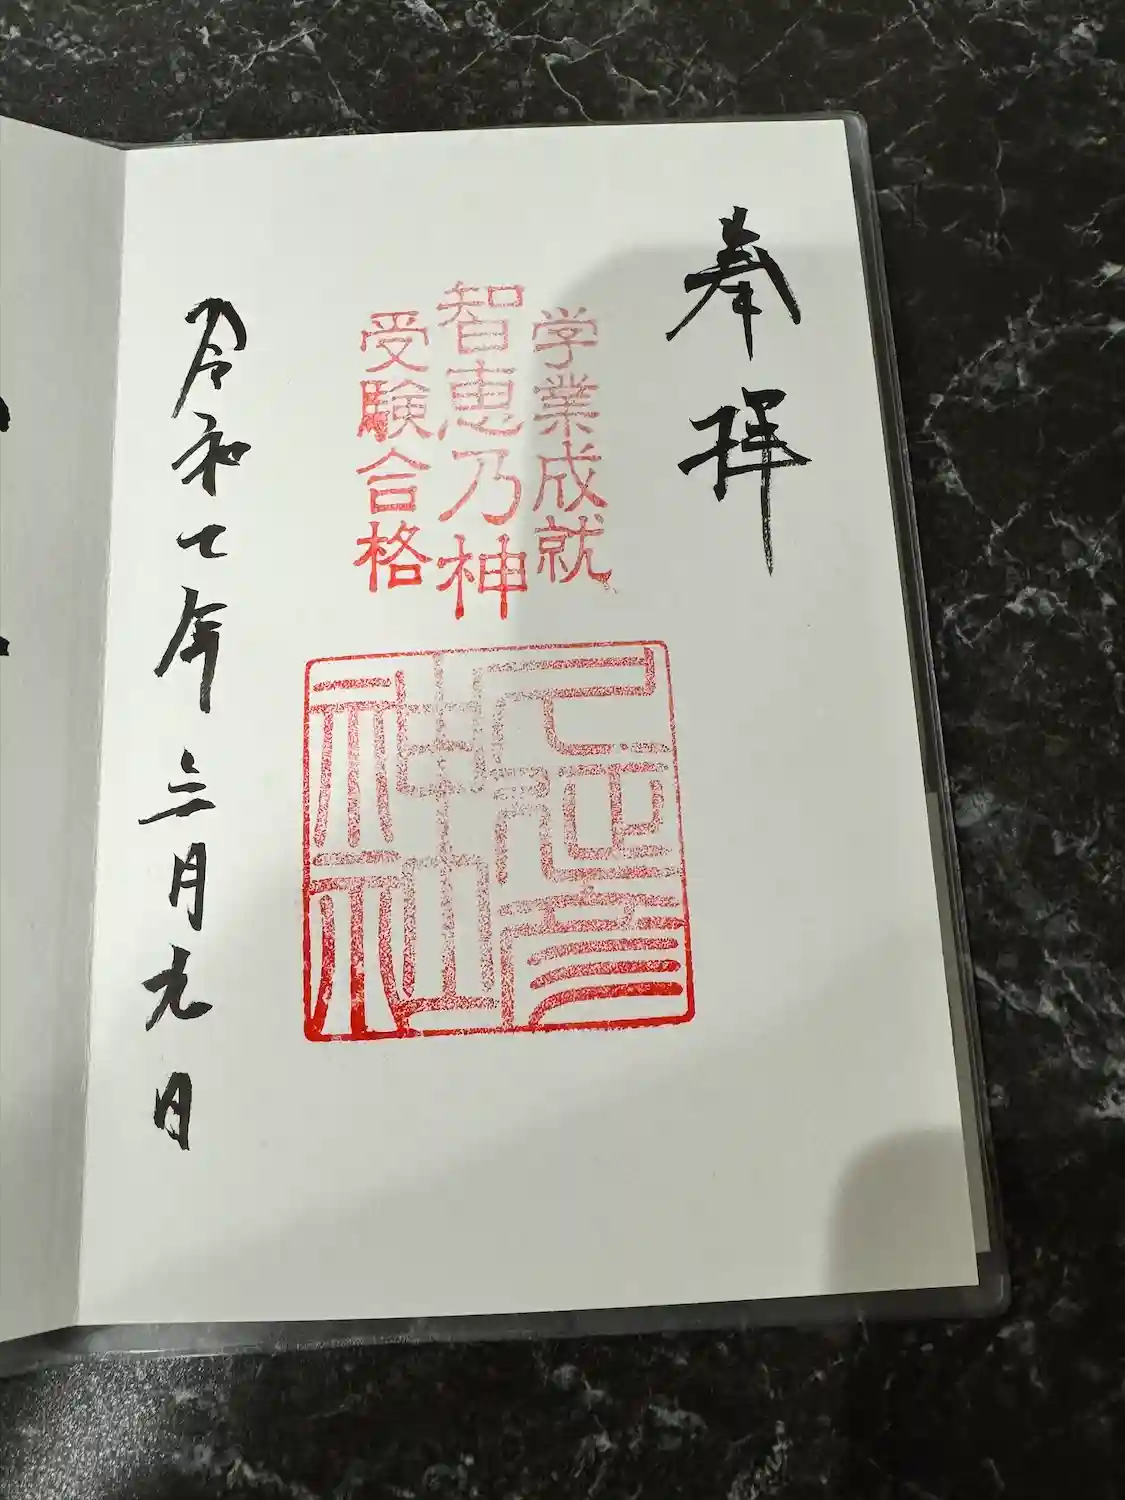 奉拝
学業成就
智恵乃神
受験合格
久延彦
神社
令和七年三月九日